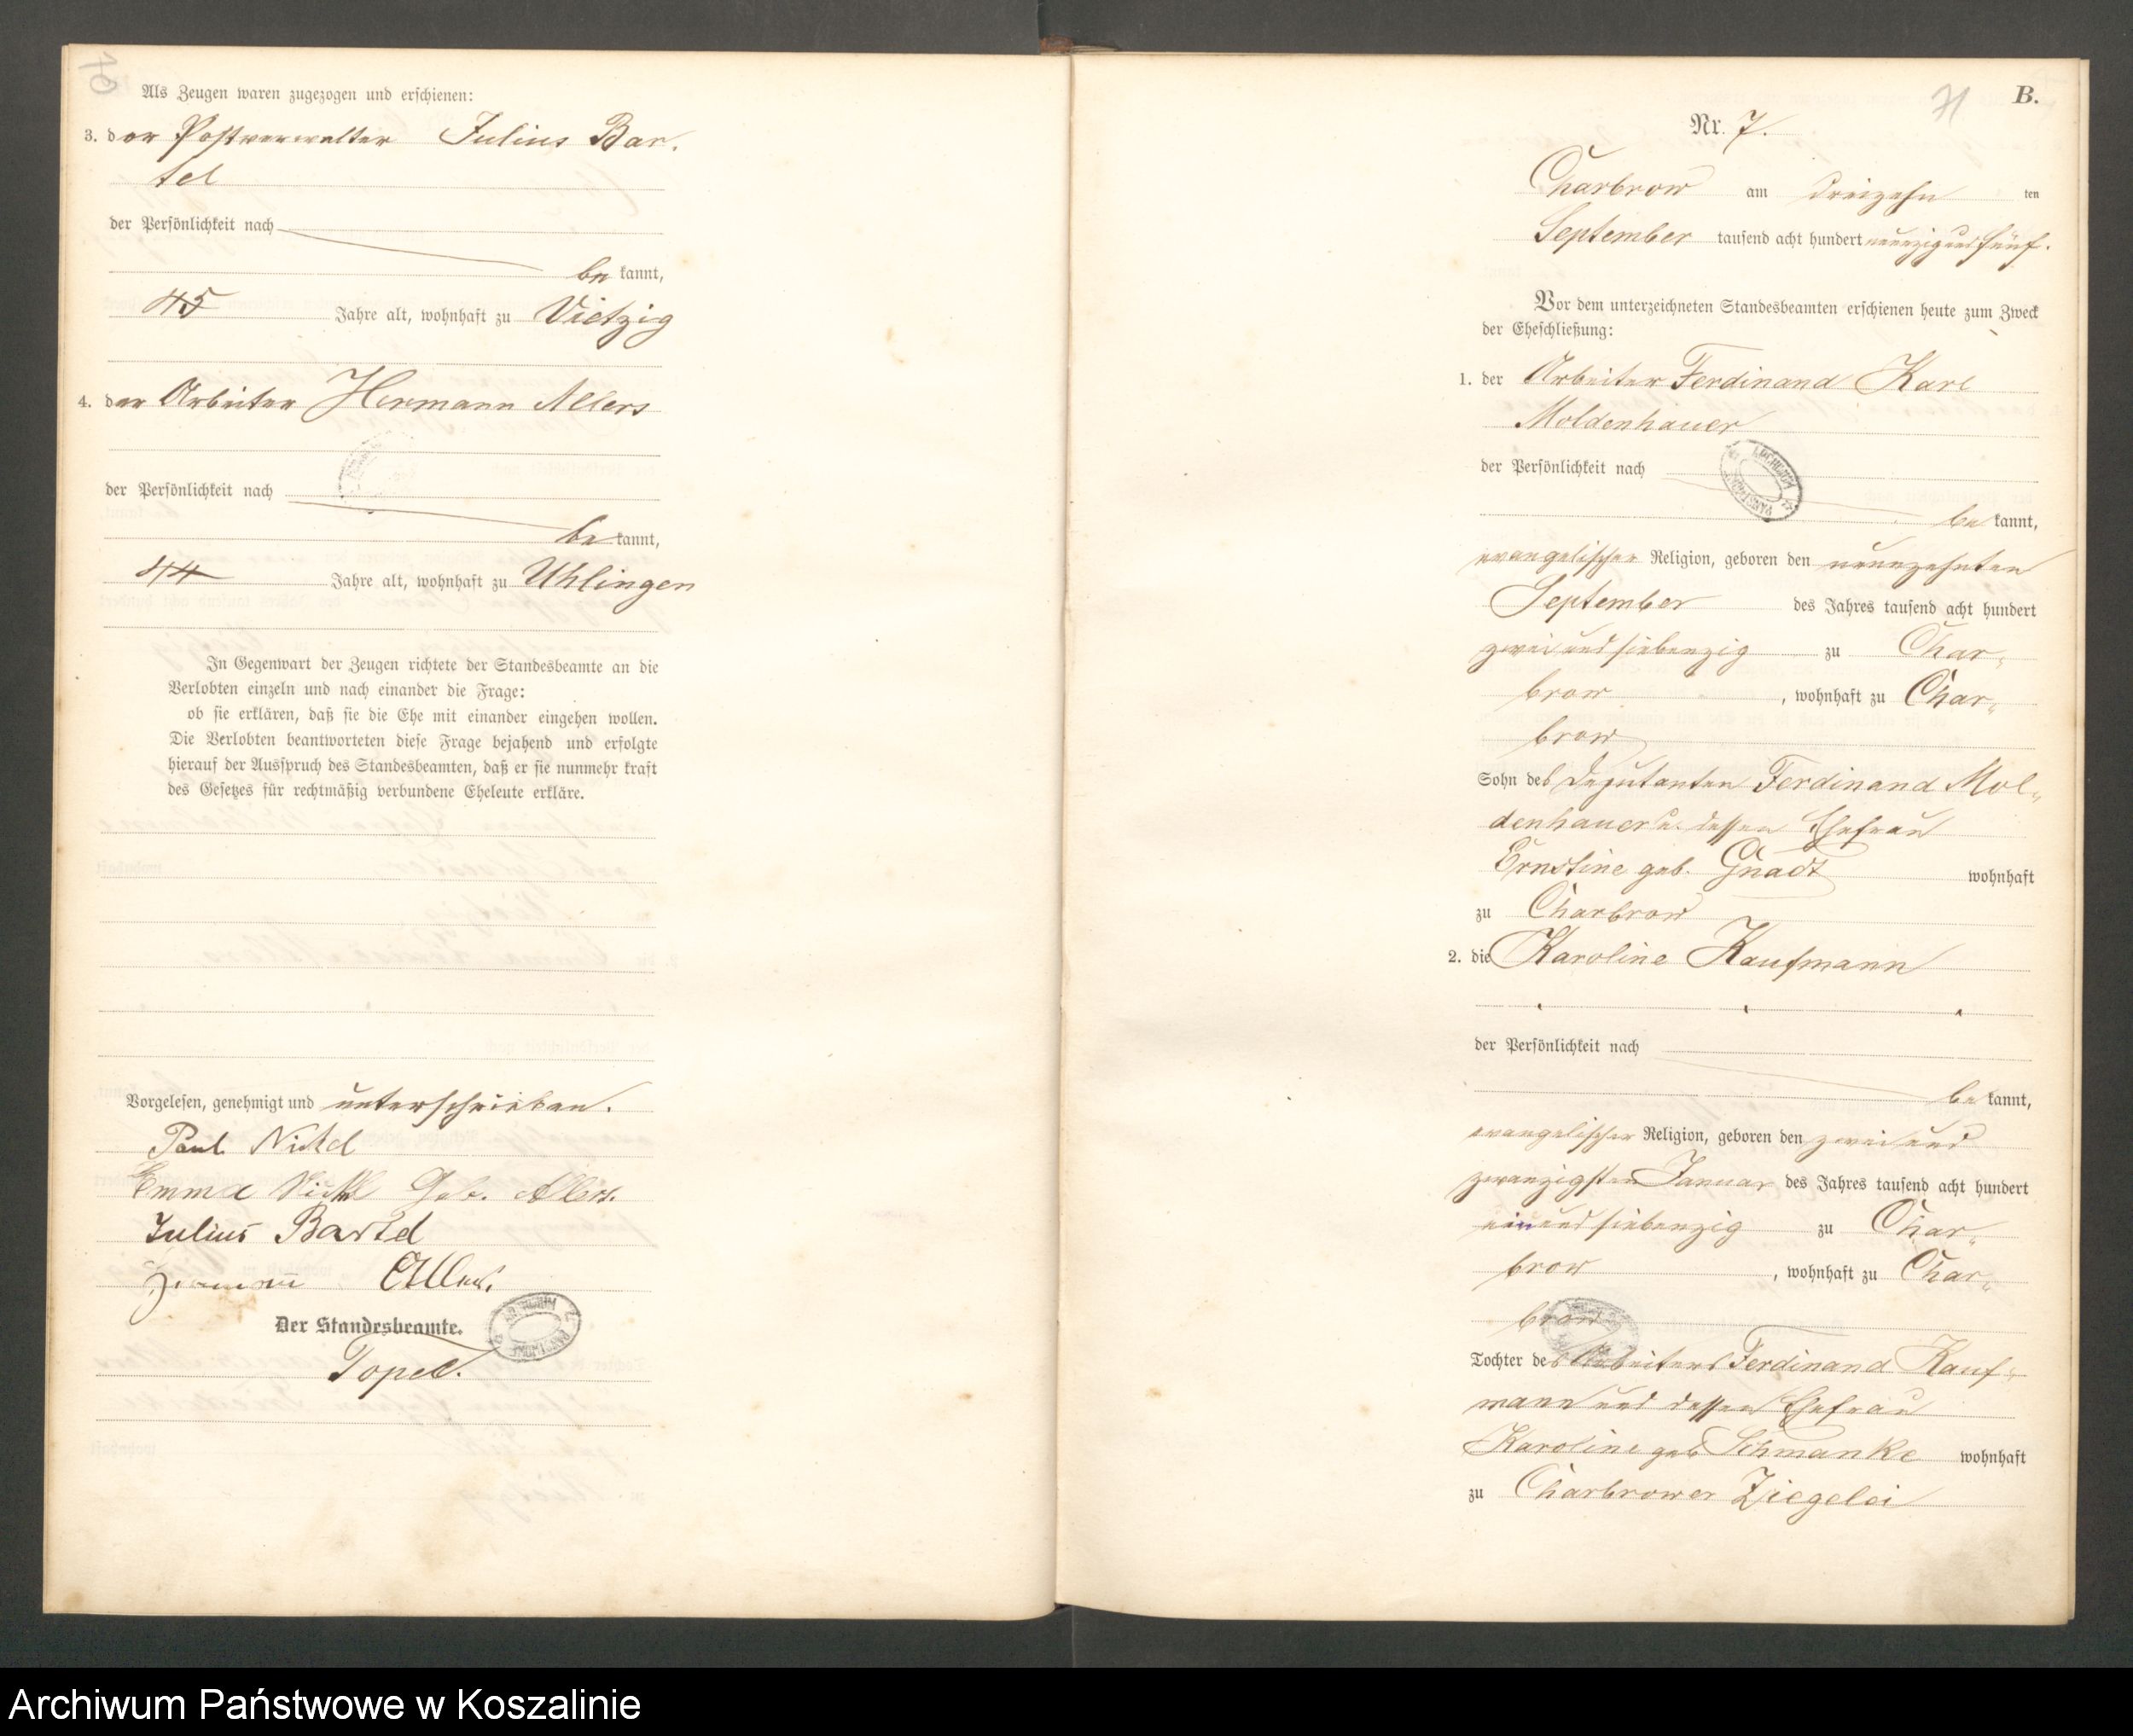 70
Als Zeugen waren zugezogen und erschienen:
3. der Postverwalter Julius Bar-
tel
der Persönlichkeit nach
be kannt,
45 Jahre alt, wohnhaft zu Vietzig
4. der Arbeiter Hermann Allers
der Persönlichkeit nach
be kannt,
44 Jahre alt, wohnhaft zu Uhlingen
In Gegenwart der Zeugen richtete der Standesbeamte an die
Verlobten einzeln und nach einander die Frage:
ob sie erklären, daß sie die Ehe mit einander eingehen wollen.
Die Verlobten beantworteten diese Frage bejahend und erfolgte
hierauf der Ausspruch des Standesbeamten, daß er sie nunmehr kraft
des Gesetzes für rechtmäßig verbundene Eheleute erkläre.
Vorgelesen, genehmigt und unterschrieben.
Paul Nickel
Emma Nickel Geb. Allers.
Julius Bartel
Hermann Allers.
Der Standesbeamte.
Topel.
71
B.
Nr. 7.
Charbrow am dreizehn ten
September tausend acht hundert neunzig und fünf.
Vor dem unterzeichneten Standesbeamten erschienen heute zum Zweck
der Eheschließung:
1. der Arbeiter Ferdinand Karl
Moldenhauer
der Persönlichkeit nach
be kannt,
evangelischer Religion, geboren den neunzehnten
September des Jahres tausend acht hundert
zwei und siebenzig zu Char-
brow, wohnhaft zu Char-
brow
Sohn des Deputanten Ferdinand Mol-
denhauer u. dessen Ehefrau
Ernstine geb. Gnadt wohnhaft
zu Charbrow
2. die Karoline Kaufmann
der Persönlichkeit nach
be kannt,
evangelischer Religion, geboren den zwei und
zwanzigsten Januar des Jahres tausend acht hundert
ein und siebenzig zu Char-
brow, wohnhaft zu Char-
brow
Tochter des Arbeiters Ferdinand Kauf-
mann und dessen Ehefrau
Karoline geb Schmanke wohnhaft
zu Charbrower Ziegelei
Archiwum Państwowe w Koszalinie